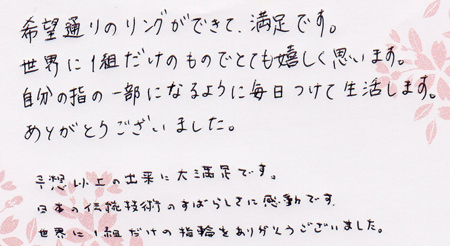 希望通りのリングができて、満足です。
世界に1組だけのものでとても嬉しく思います。
自分の指の一部になるように毎日つけて生活します。
ありがとうございました。
予想以上の出来に大満足です。
日本の伝統技術のすばらしさに感動です。
世界に1組だけの指輪をありがとうございました。